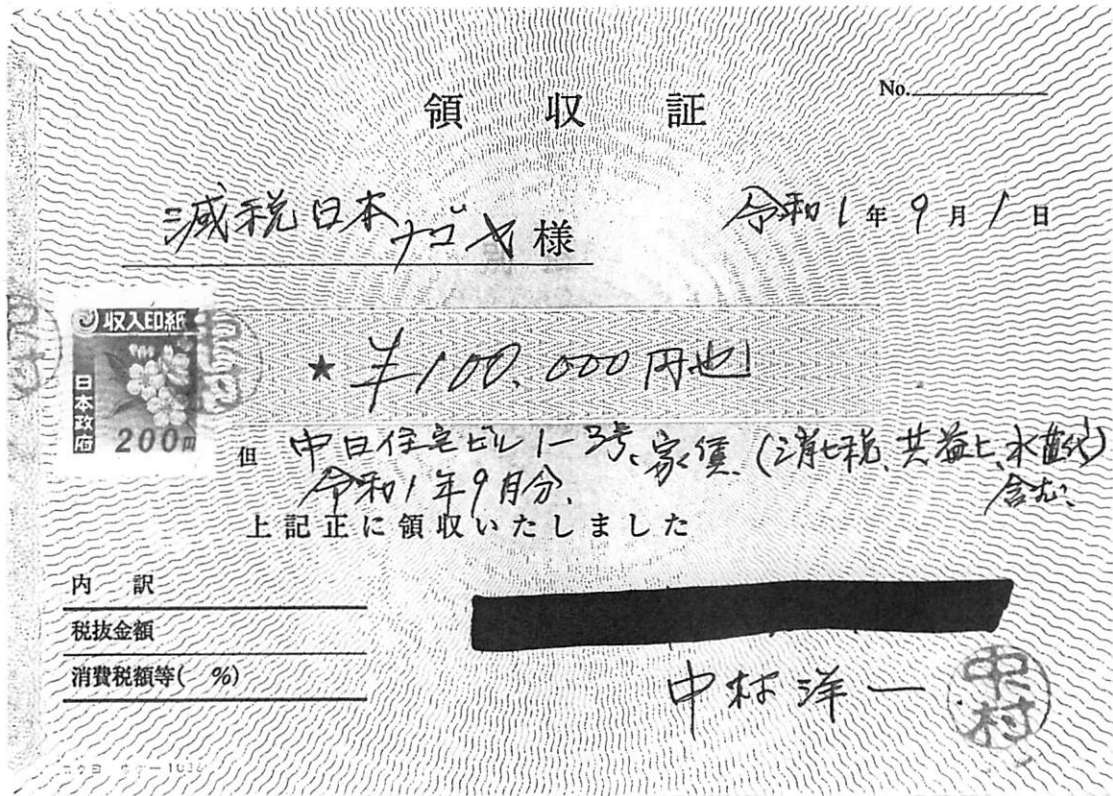 No.
領収証
減税日本ナゴヤ様
令和1年9月1日
収入印紙
日本政府
200円
★ ¥100,000円也
但 中日住宅ビル1-3号、家賃(消ヒ税、共益ヒ、水道代)
令和1年9月分、 含む
上記正に領収いたしました
内訳
税抜金額
消費税額等( %)
中村洋一
中村